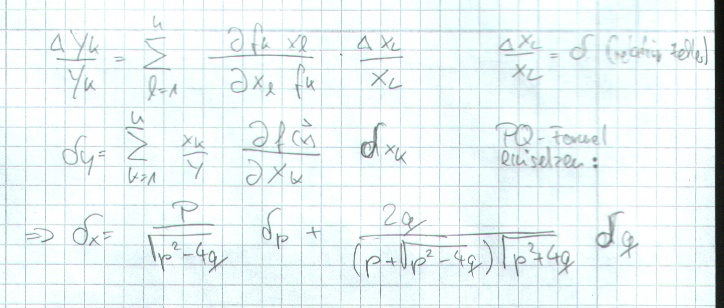 Δyk/yk = Σ(l=1 to n) ∂fk xl / ∂xl fk · Δxl/xl    Δxl/xl = δ (relativ Fehler)
δy = Σ(k=1 to n) xk/y ∂f(x⃗)/∂xk δxk    PQ-Formel
einsetzen:
⇒ δx = p/√(p²-4q) δp + 2q/((p+√(p²-4q))√(p²+4q)) δq